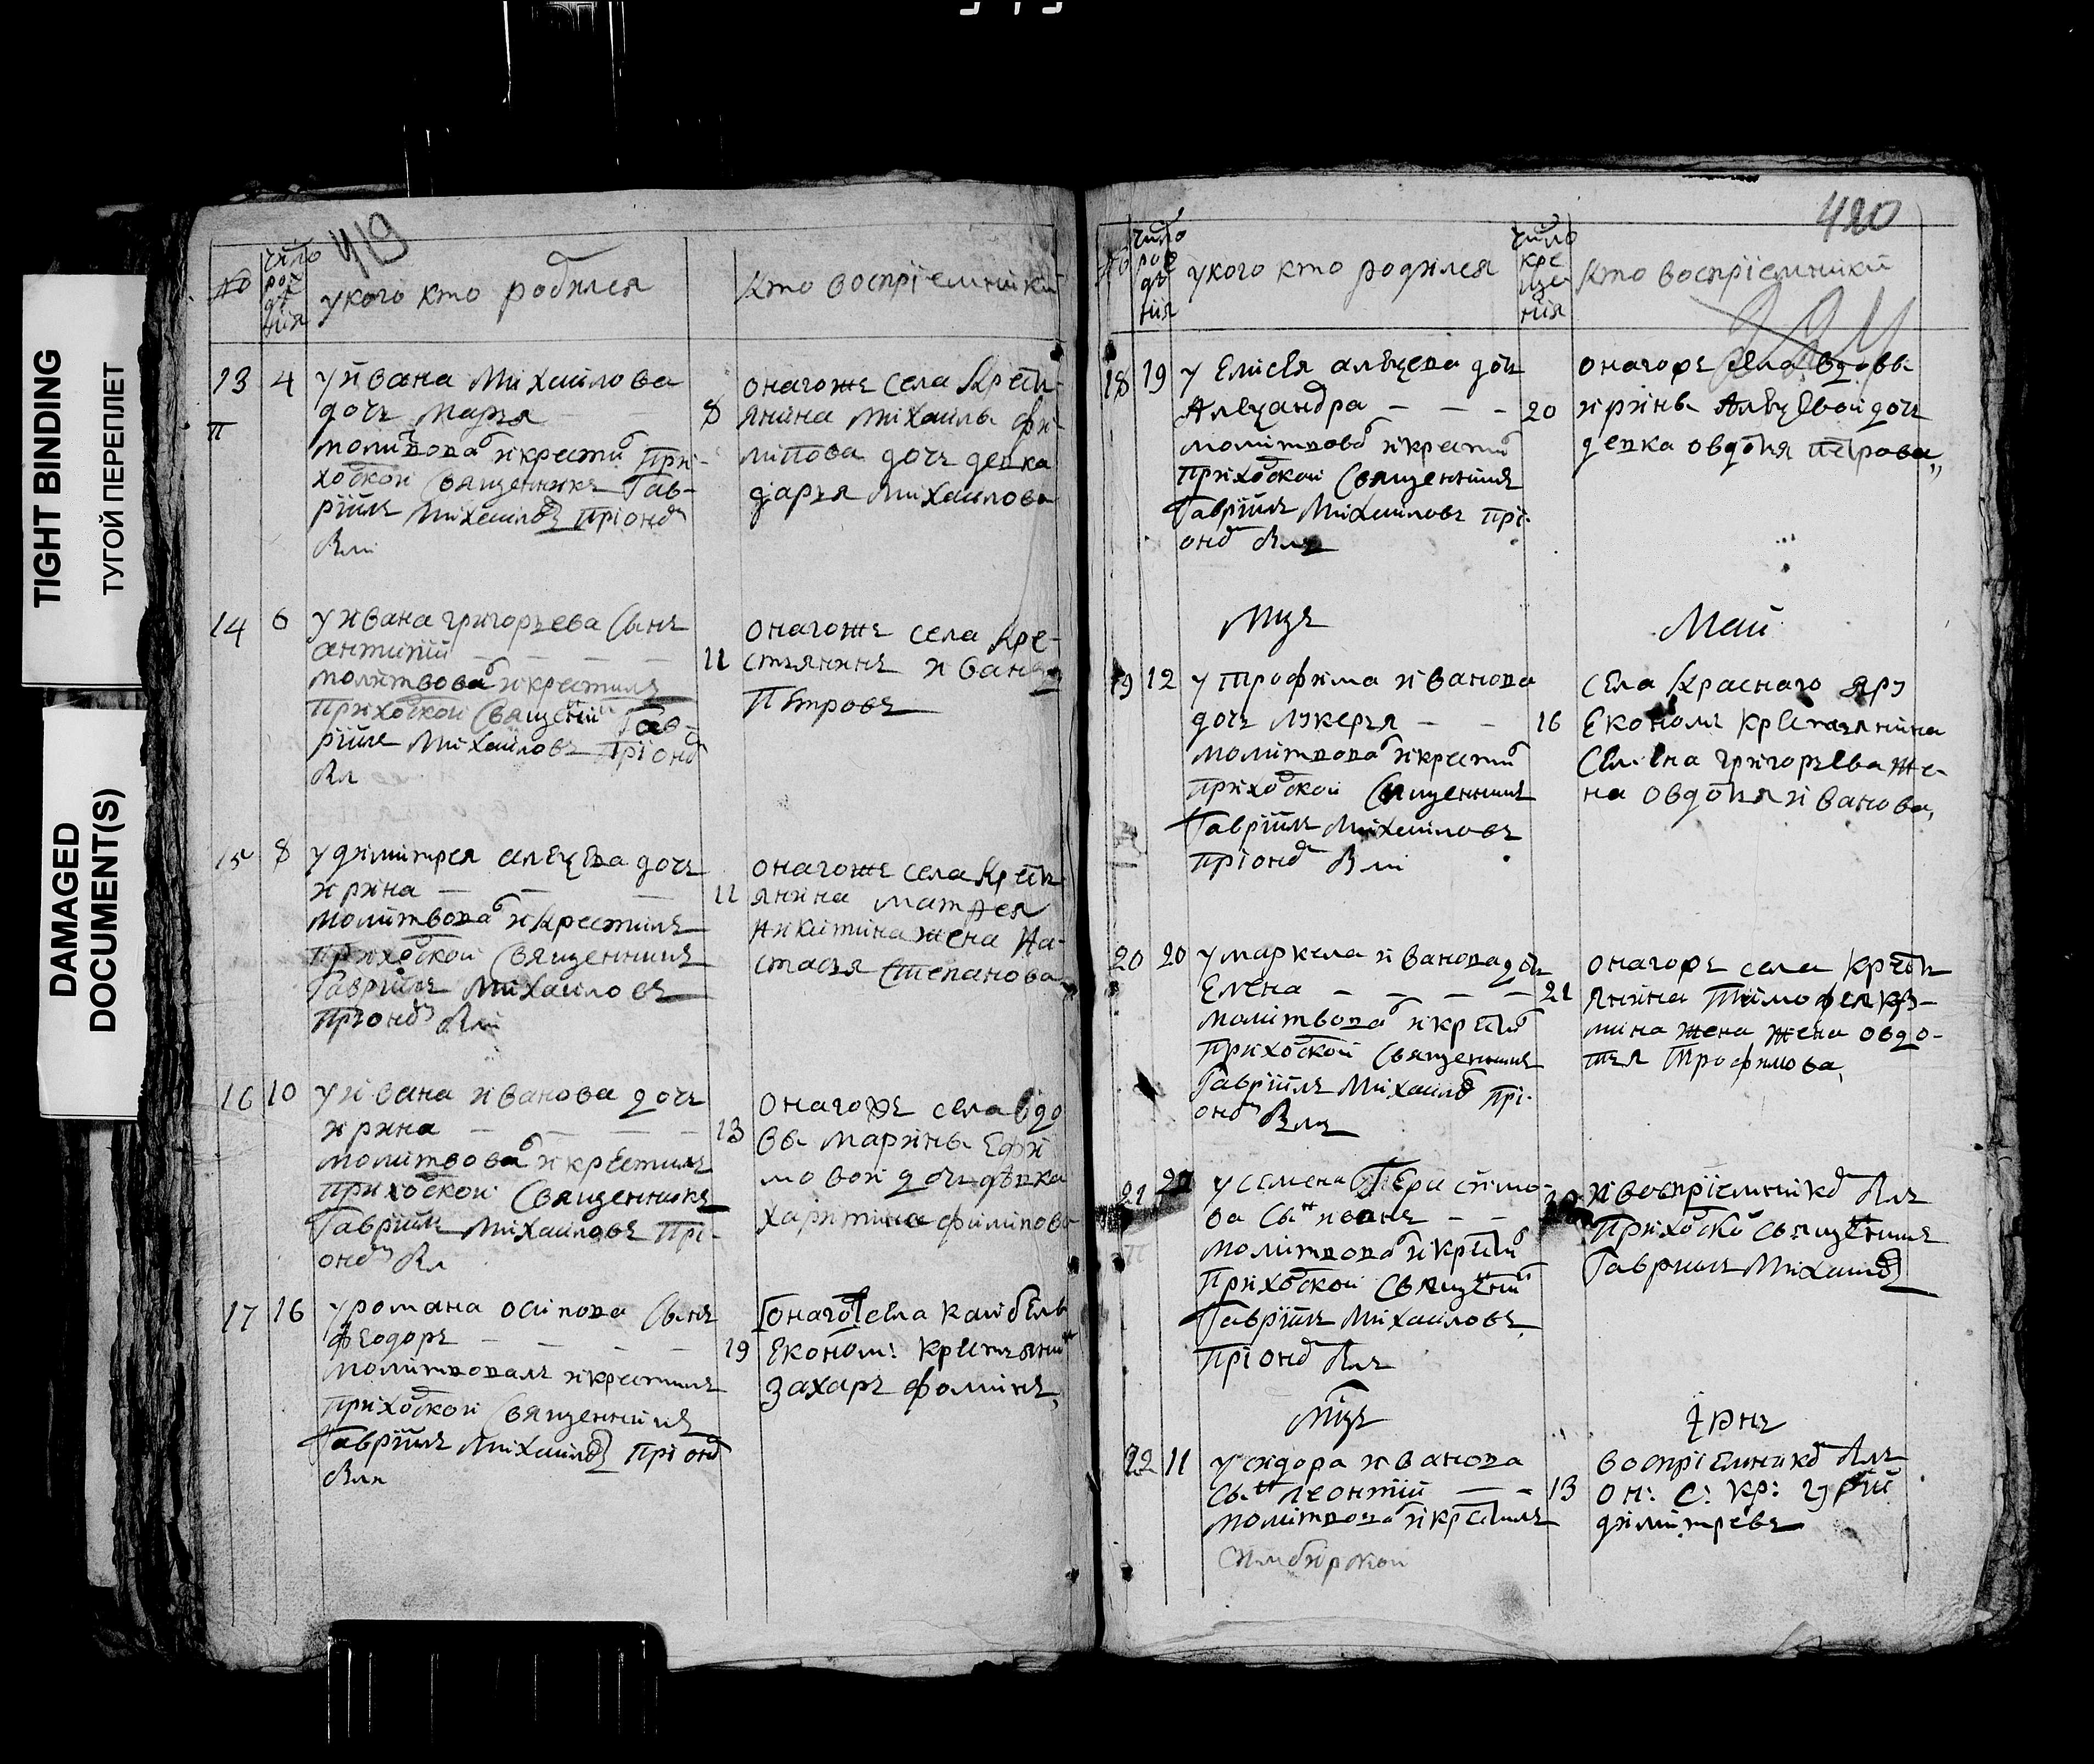 TIGHT BINDING
ТУГОЙ ПЕРЕПЛЕТ
DAMAGED
DOCUMENT(S)
419
№
число рождѣнiя
у кого кто родился
кто воспрiемники
13
4
у ивана михаилова
дочь марья
молитвовалъ и крестил при-
хоцкои священникъ гав-
рiилъ михаиловъ прi ондѣ
8
онагожъ села крестьянина михаилы фи-
липова дочь девка
дарья михаилова
14
6
у ивана григорьева сынъ
антипiй
молитвовалъ и крестилъ
прихоцкои священникъ гав-
рiилъ михаиловъ прi ондѣ
11
онагожъ села кре-
стьянинъ иванъ
петровъ
15
8
у димитрея алеѯева дочь
ирина
молитвовалъ и крестилъ
прихоцкои священникъ
гаврiилъ михаиловъ
11
онагожъ села крестьянина матфея
никитина жена на-
стасья степанова
16
10
у ивана иванова дочь
ирина
молитвовалъ и крестилъ
прихоцкои священникъ
гаврiилъ михаиловъ прi-
13
онагожъ села вдо-
вы марины ефи-
мовои дочь дѣвка
харитина филипова
17
16
у романа осипова сынъ
феодоръ
молитвовалъ и крестилъ
прихоцкои священникъ
гаврiилъ михаиловъ прi
19
онаго села каибелы
економ: крестьянинъ
захаръ фоминъ
420
№
число рождѣнiя
у кого кто родился
число крещенiя
кто воспрiемники
18
19
у елисея алеѯева дочь
алеѯандра
молитвовалъ и крестилъ
прихоцкои священникъ
гаврiилъ михаиловъ прi-
20
онагожъ села вдовы
ирины алеѯѣвои дочь
девка овдотья петрова
мцъ
маи
19
12
у трофима иванова
дочь лукерья
молитвовалъ и крестилъ
прихоцкои священникъ
гаврiилъ михаиловъ
16
села краснаго яру
економ: крестьянина
семена григорьева же-
на овдотья иванова
20
20
у маркела иванова дочь
елена
молитвовалъ и крестилъ
прихоцкои священникъ
гаврiилъ михаиловъ прi-
21
онагожъ села крестьянина тимофея куз-
мина жена жена овдо-
тья трофимова
21
у семена
ва сынъ иванъ
молитвовалъ и крестилъ
прихоцкои священникъ
гаврiилъ михаиловъ
и воспрiемникомъ былъ
прихоцкои священникъ
гаврiилъ михаиловъ
мцъ
iюнь
22
11
у сидора иванова
сынъ леонтiй
молитвовалъ и крестилъ
симбирской
13
воспрiемникомъ былъ
он: с: кр: гурiй
димитревъ